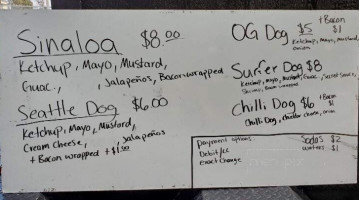 Sinaloa $8.00
Ketchup, Mayo, Mustard,
Guac., , Jalapeños, Bacon wrapped
Seattle Dog $6.00
Ketchup, Mayo, Mustard,
Cream Cheese, , Jalapeños
+ Bacon wrapped + $1.00
OG Dog $5 + Bacon $1
Ketchup, Mayo, Mustard,
onion
Surfer Dog $8
Ketchup, Mayo, Mustard, Guac., Secret Sauce,
Bacon wrapped
Chilli Dog $6 + Bacon $1
Chilli Dog, cheddar cheese, onion
payment options:
Debit/cc
exact change
Sodas $2
waters $1